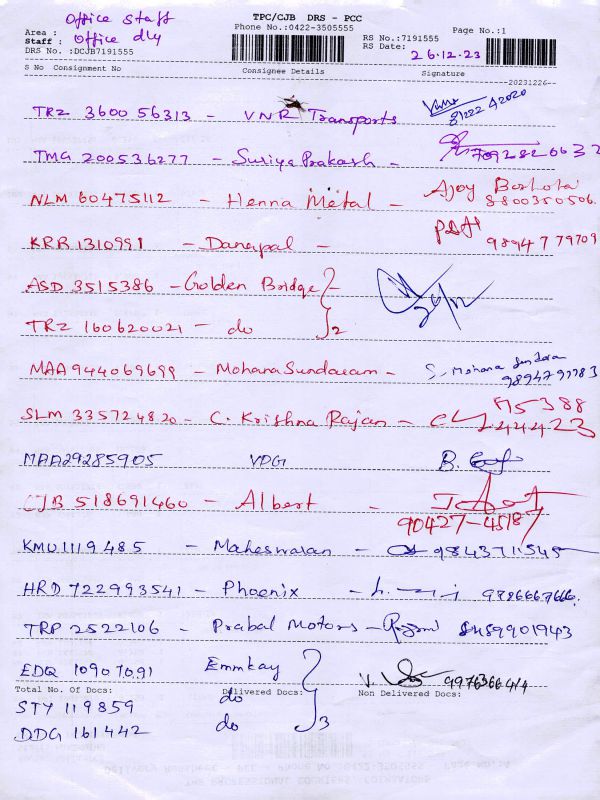 Office Staff
TPC/CJB DRS - PCC
Phone No.:0422-3505555
Page No.:1
Area :
Staff : Office dly
RS No.:7191555
RS Date: 26.12.23
DRS No. :DCJB7191555
S No Consignment No Consignee Details Signature
20231226
TRZ 360056313 - VNR Transports
TMG 200536277 - Suriya Prakash -
NLM 60475112 - Henna Metal - Ajoy 8800350506.
KRR 1310991 - Danapal - 98947 79709
ASD 3515386 - Golden Bridge
26/12
TRZ 160620021 - do 2
MAA944069699 - Mohana Sundaram - S. Mohana Sundara
SLM 335724820 - C. Krishna Rajan - 75388
44423
MAA29285905 VDG B.
CJB 518691460 - Albert
90427-45187
KMU1119485 - Maheswaran - 9843711545
HRD 722993541 - Phoenix - 9786667666.
TRP 2522106 - Prabal Motors -
EDQ 10907091 Emmkay V.
Total No. Of Docs: Delivered Docs: Non Delivered Docs:
STY 119859 do
DDG 161442 do 3